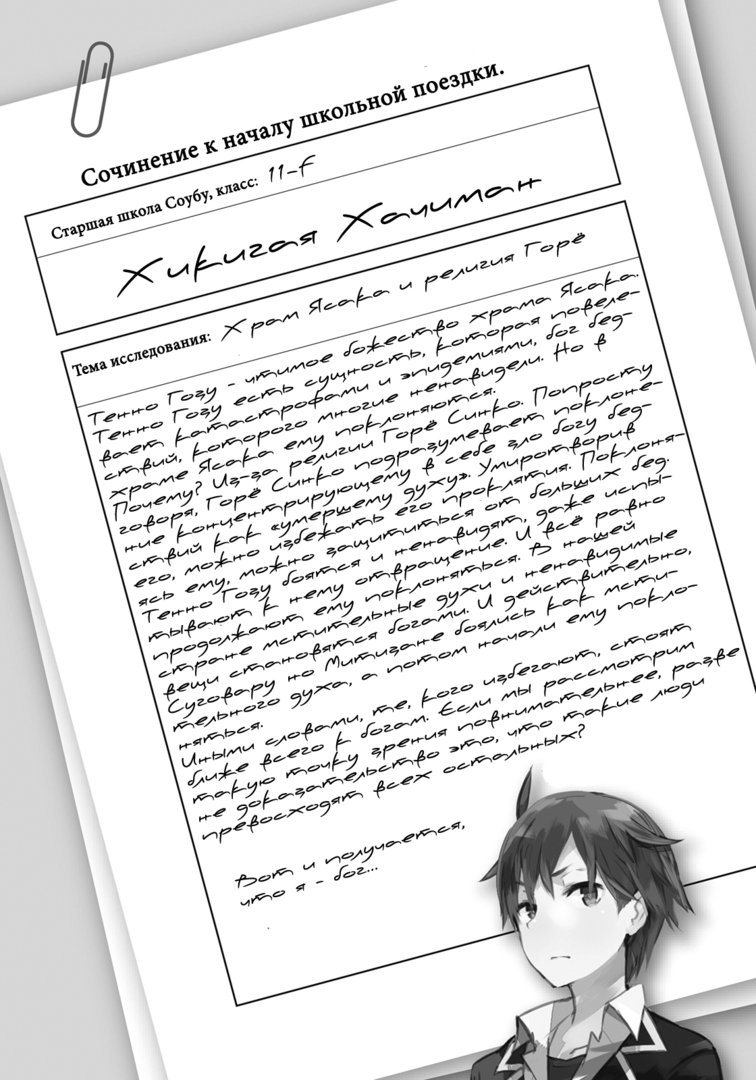 Сочинение к началу школьной поездки.
Старшая школа Соубу, класс: 11-F
Хикигая Хачиман
Тема исследования: Храм Ясака и религия Горё
Тенно Гозу - чтимое божество храма Ясака.
Тенно Гозу есть сущность, которая повеле-
вает катастрофами и эпидемиями, бог бед-
ствий, которого многие ненавидели. Но в
храме Ясака ему поклоняются.
Почему? Из-за религии Горё Синко. Попросту
говоря, Горё Синко подразумевает поклоне-
ние концентрирующему в себе зло богу бед-
ствий как «умершему духу». Умиротворив
его, можно избежать его проклятия. Поклоня-
ясь ему, можно защититься от больших бед.
Тенно Гозу боятся и ненавидят, даже испы-
тывают к нему отвращение. И всё равно
продолжают ему поклоняться. В нашей
стране мстительные духи и ненавидимые
вещи становятся богами. И действительно,
Суговару но Митизане боялись как мсти-
тельного духа, а потом начали ему покло-
няться.
Иными словами, те, кого избегают, стоят
ближе всего к богам. Если мы рассмотрим
такую точку зрения повнимательнее, разве
не доказательство это, что такие люди
превосходят всех остальных?
Вот и получается,
что я - бог...